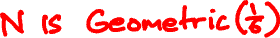 N is Geometric(1/6)